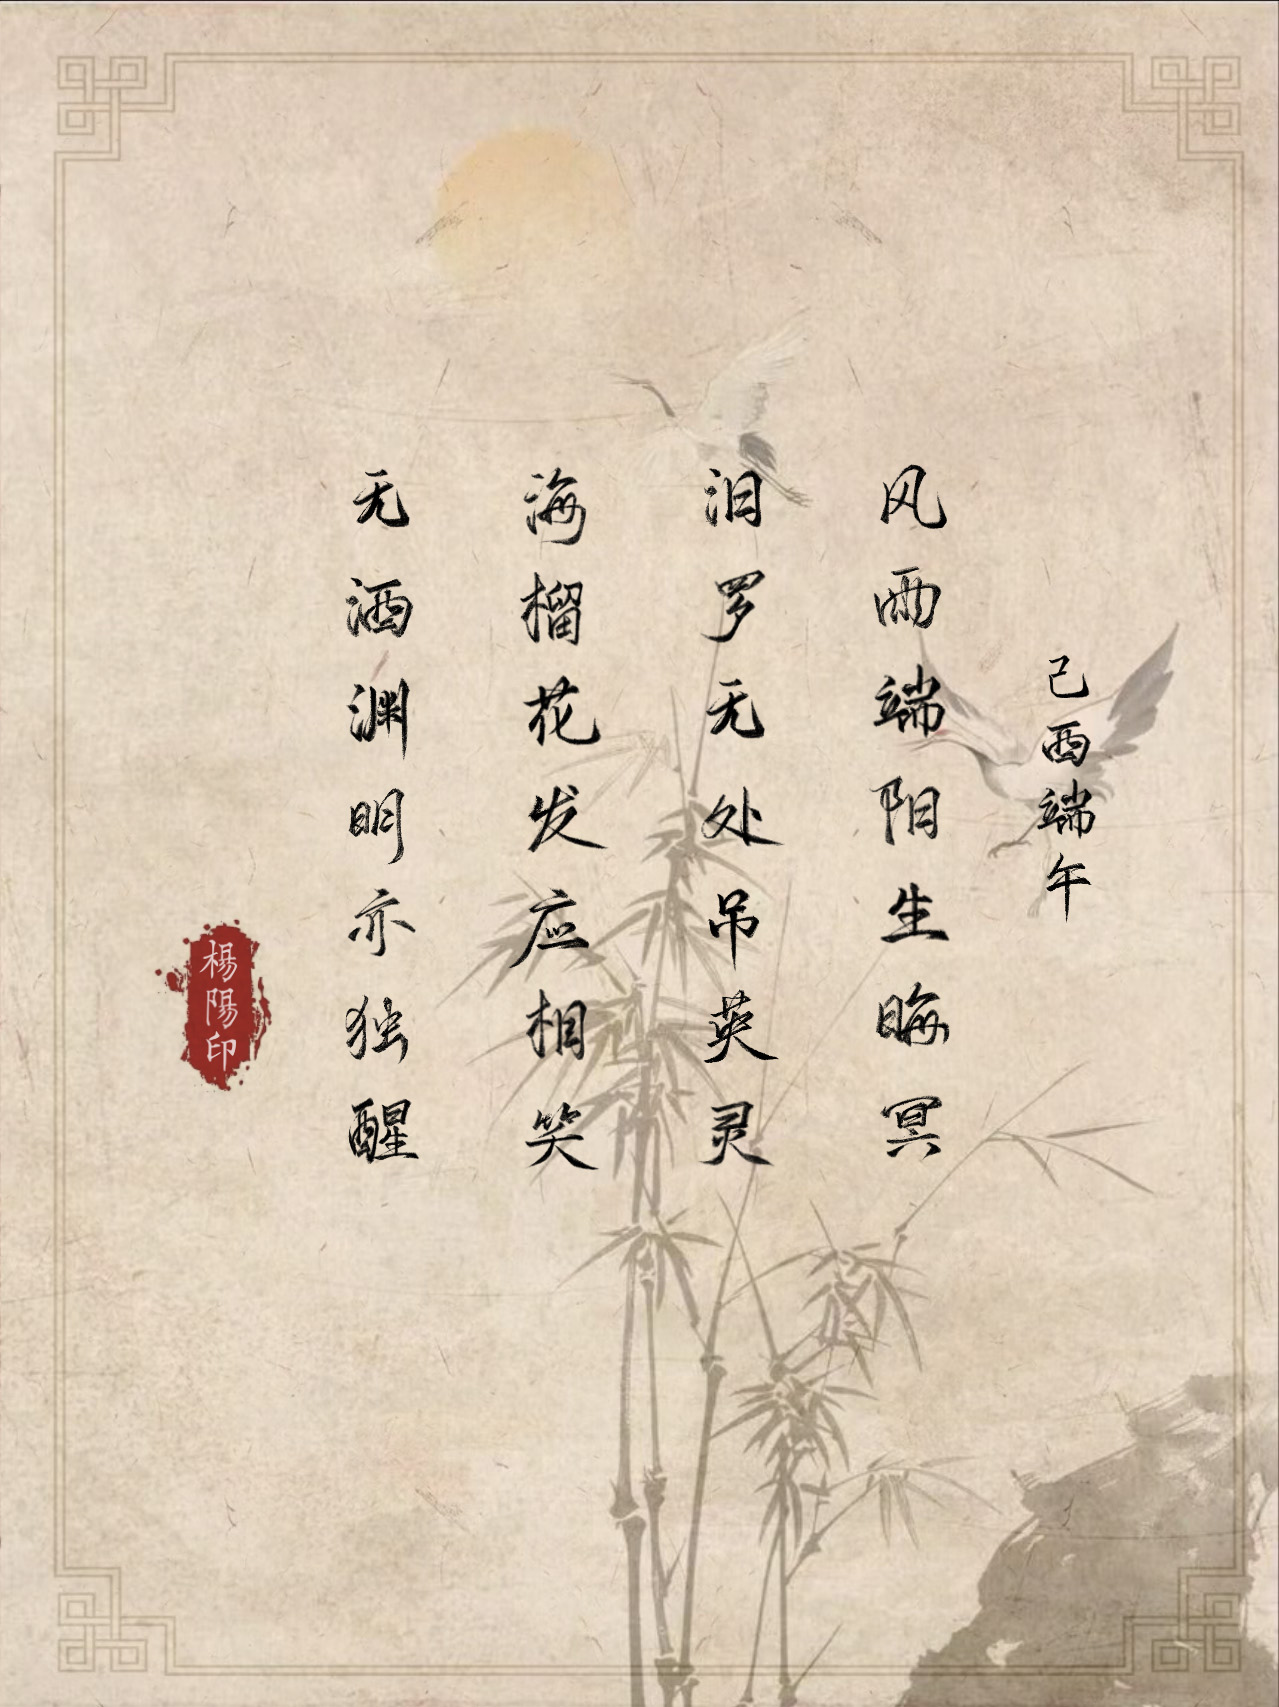 己酉端午
风雨端阳生晦冥
汨罗无处吊英灵
海榴花发应相笑
无酒渊明亦独醒
楊陽印